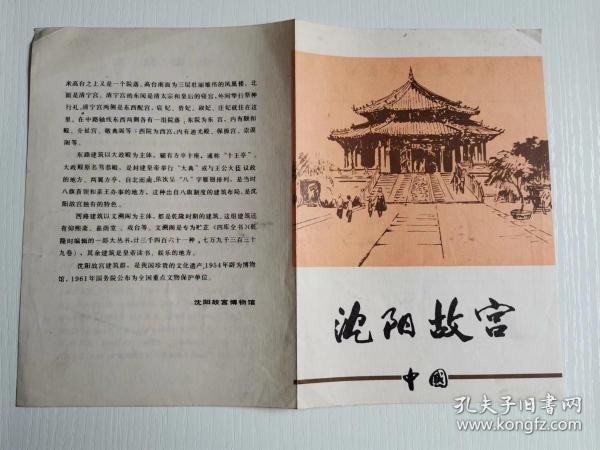 米高台之上又是一个院落。高台南面为三层壮丽雄伟的凤凰楼，北
面是清宁宫。清宁宫的东间是清太宗和皇后的寝宫，外间举行祭神
行礼。清宁宫两侧是东西配宫，宸妃、贵妃、淑妃、庄妃就住在这
里。在中路轴线东西两侧各有一组院落，东院为东宫，内有颐和
殿、介祉宫、敬典阁等；西院为西宫，内有迪光殿、保极宫、崇谟
阁等。
东路建筑以大政殿为主体，辅有方亭十座，通称“十王亭”。
大政殿原名笃恭殿，是封建皇帝举行“大典”或与王公大臣议政
的地方。两翼方亭，自北而南，依次呈“八”字雁翅排列，是当时
八旗首领和亲王办事的地方，这种出自八旗制度的建筑布局，是沈
阳故宫独有的特色。
西路建筑以文溯阁为主体，都是乾隆时期的建筑。这组建筑还
有仰熙斋、嘉荫堂、戏台等。文溯阁是专为贮正《四库全书》（乾
隆时编辑的一部大丛书，计三千四百六十一种，七万九千三百三十
九卷），其余建筑是皇帝读书、娱乐的地方。
沈阳故宫建筑群，是我国珍贵的文化遗产，1954年辟为博物
馆，1961年国务院公布为全国重点文物保护单位。
沈阳故宫博物馆
沈阳故宫
中國
孔夫子旧书网
www.kongfz.com